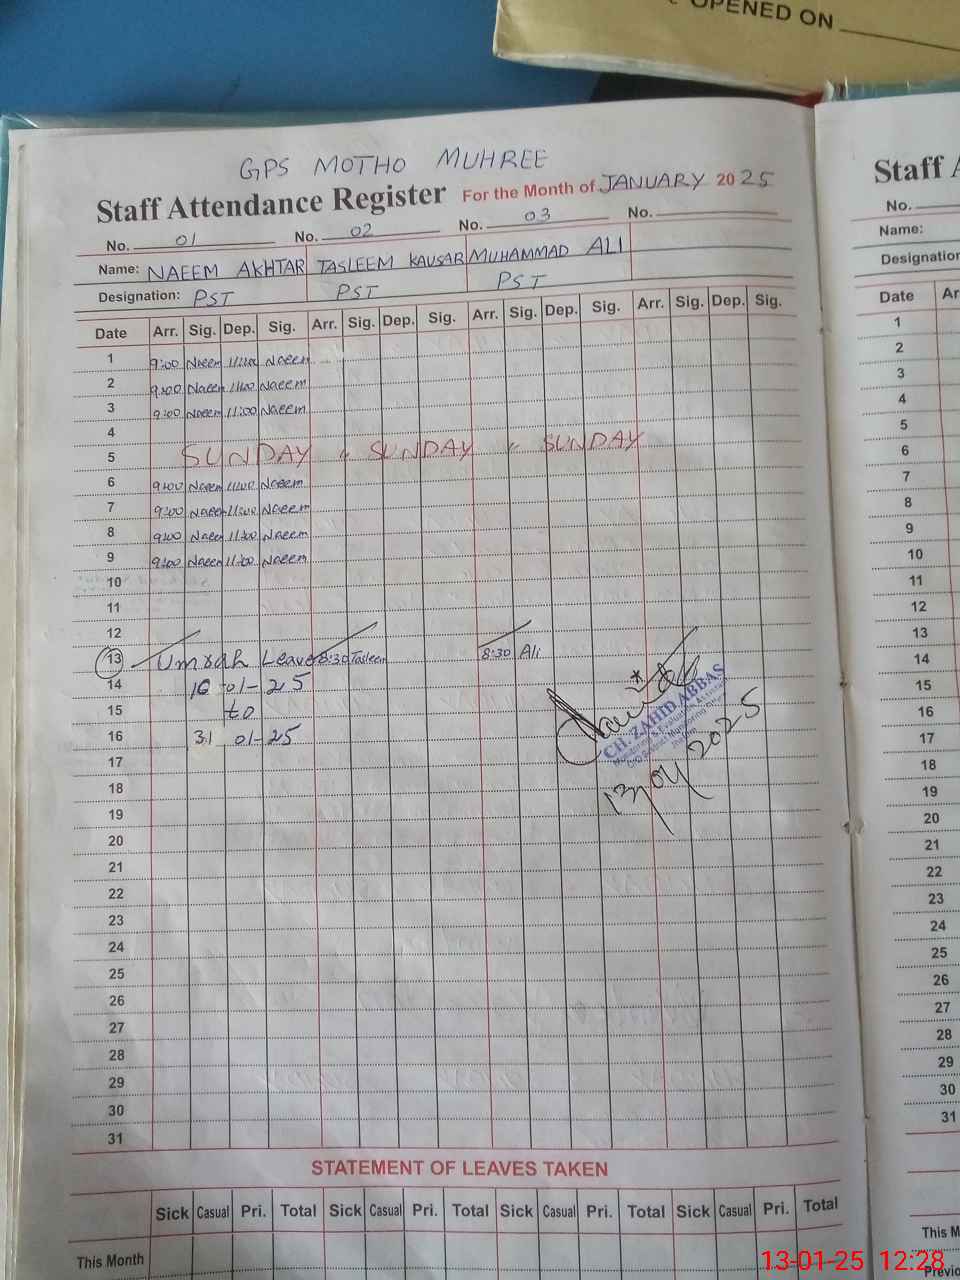 OPENED ON
GPS MOTHO MUHREE
Staff Attendance Register For the Month of JANUARY 2025
No. 01 No. 02 No. 03 No.
Name: NAEEM AKHTAR TASLEEM KAUSAR MUHAMMAD ALI
Designation: PST PST PST
Date Arr. Sig. Dep. Sig. Arr. Sig. Dep. Sig. Arr. Sig. Dep. Sig. Arr. Sig. Dep. Sig.
1 9:00 Naeem 11:00 Naeem
2 9:00 Naeem 11:00 Naeem
3 9:00 Naeem 11:00 Naeem
4
5 SUNDAY " SUNDAY " SUNDAY
6 9:00 Naeem 11:00 Naeem
7 9:00 Naeem 11:00 Naeem
8 9:00 Naeem 11:00 Naeem
9 9:00 Naeem 11:00 Naeem
10
11
12
13 Umrah Leave 8:30 Tasleem 8:30 Ali
14 10-01-25
15 to
16 31 01-25
CH. ZAHID ABBAS
Monitoring & Evaluation Assistant
13/01/2025
17
18
19
20
21
22
23
24
25
26
27
28
29
30
31
STATEMENT OF LEAVES TAKEN
Sick Casual Pri. Total Sick Casual Pri. Total Sick Casual Pri. Total Sick Casual Pri. Total
This Month
Staff
No.
Name:
Date
1
2
3
4
5
6
7
8
9
10
11
12
13
14
15
16
17
18
19
20
21
22
23
24
25
26
27
28
29
30
31
This
13-01-25 12:28